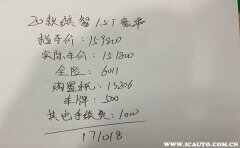 20款缤智1.5T豪华
指导价：159800
实际车价：151800
全险：6011
购置税：13206
车牌：500
其他手续费：1000
171018
爱车网
WWW.ICAUTO.COM.CN